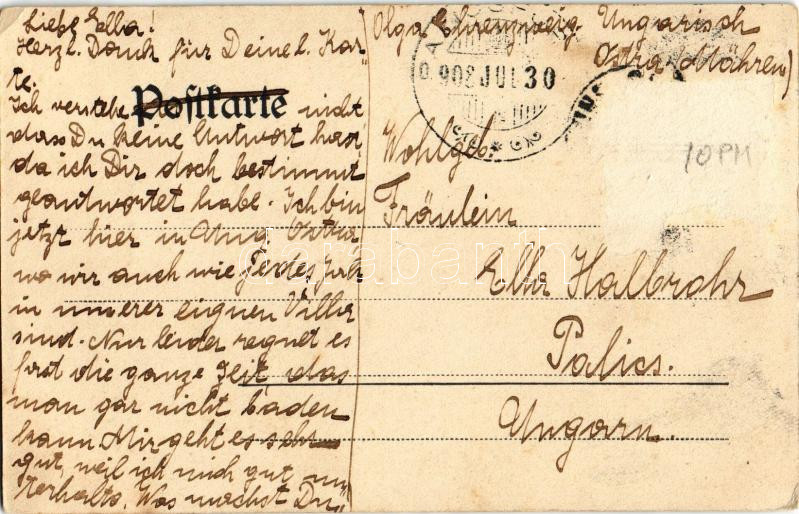 Liebe Ella!
Herzl. Danck für Deine l. Kar-
te.
Postkarte
Ich verstehe nicht
dass Du keine Antwort hast,
da ich Dir doch bestimmt
geantwortet habe. Ich bin
jetzt hier in Ung. Ostra,
wo wir auch wie jedes Jahr
in unserer eignen Villa
sind. Nur leider regnet es
fast die ganze Zeit, das
man gar nicht baden
kann Mir geht es sehr
gut, weil ich mich gut un-
terhalte. Was machst Du?
Olga Ehrenzweig. Ungarisch
Ostra (Mähren)
908 JUL 30
10PM
Wohlgeb.
Fräulein
Ella Halbrohr
Palics.
Ungarn.
darabanth